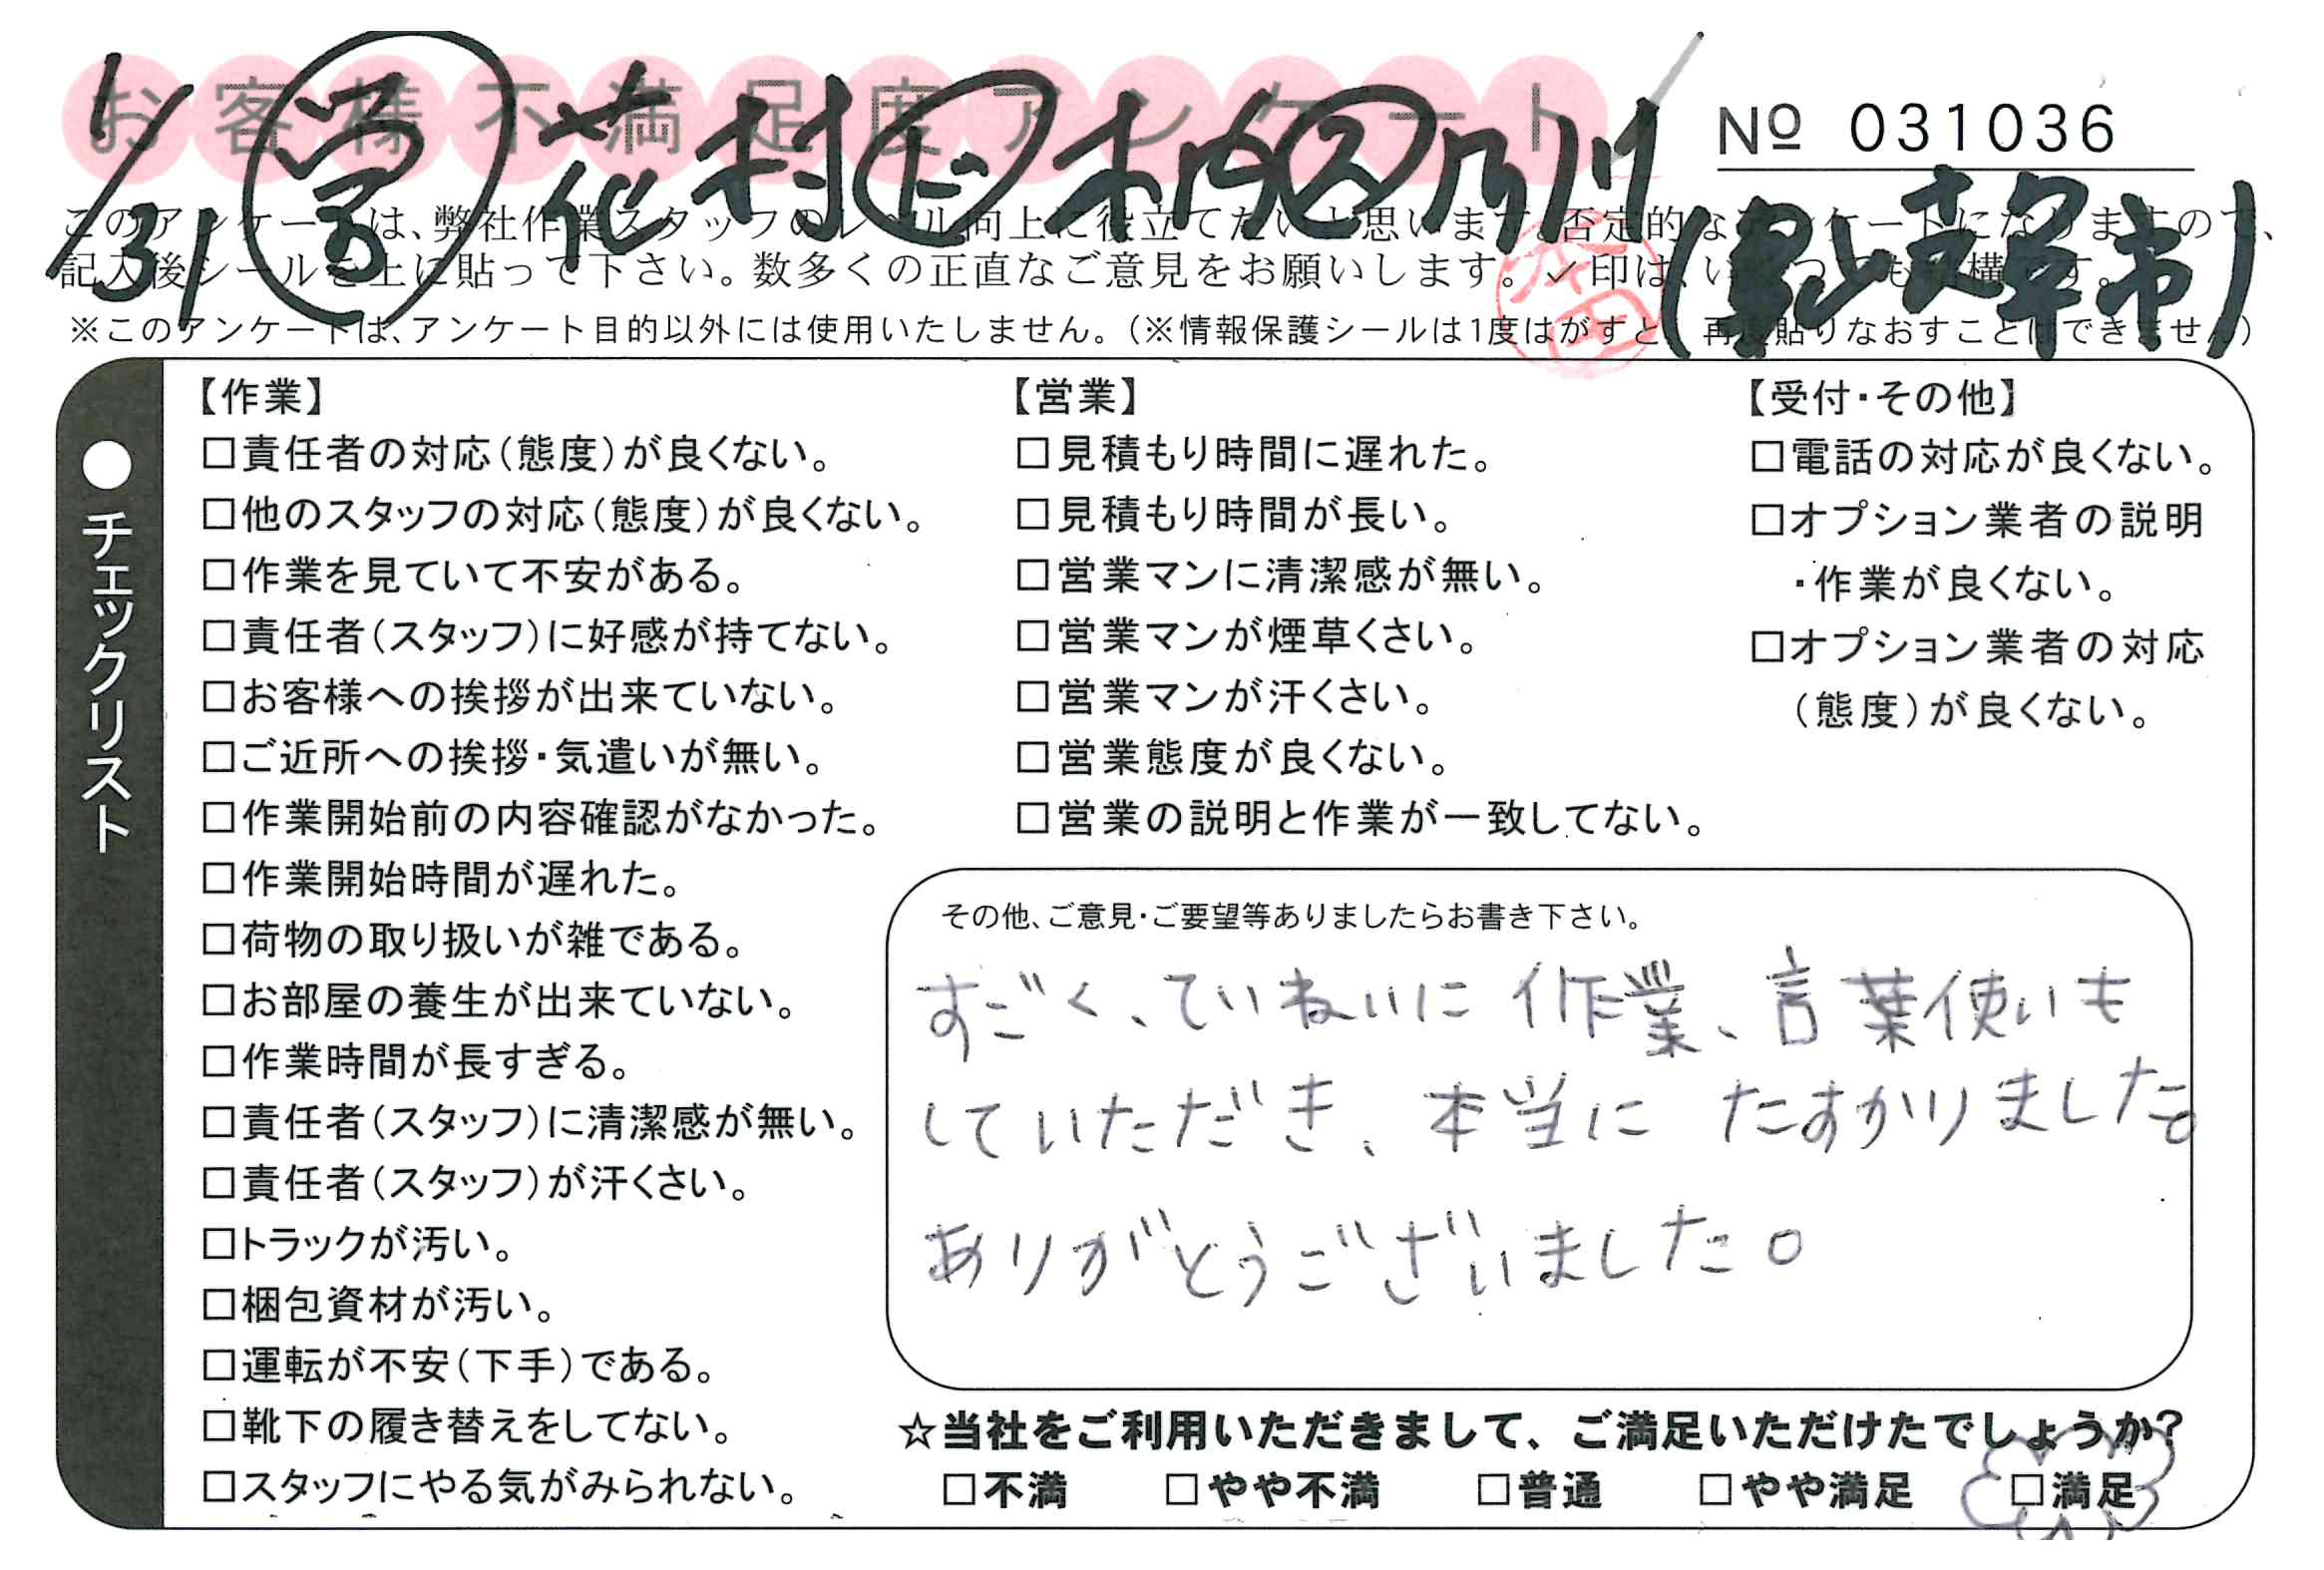 お客様不満足度アンケート
1/31
Nº 031036
このアンケートは、弊社作業スタッフのレベル向上に役立てたいと思います。否定的なアンケートになりますので、
記入後シールを上に貼って下さい。数多くの正直なご意見をお願いします。✓印は、いくつでも結構です。
※このアンケートは、アンケート目的以外には使用いたしません。（※情報保護シールは1度はがすと、再度貼りなおすことはできません）
●チェックリスト
【作業】
□責任者の対応（態度）が良くない。
□他のスタッフの対応（態度）が良くない。
□作業を見ていて不安がある。
□責任者（スタッフ）に好感が持てない。
□お客様への挨拶が出来ていない。
□ご近所への挨拶・気遣いが無い。
□作業開始前の内容確認がなかった。
□作業開始時間が遅れた。
□荷物の取り扱いが雑である。
□お部屋の養生が出来ていない。
□作業時間が長すぎる。
□責任者（スタッフ）に清潔感が無い。
□責任者（スタッフ）が汗くさい。
□トラックが汚い。
□梱包資材が汚い。
□運転が不安（下手）である。
□靴下の履き替えをしてない。
□スタッフにやる気がみられない。
【営業】
□見積もり時間に遅れた。
□見積もり時間が長い。
□営業マンに清潔感が無い。
□営業マンが煙草くさい。
□営業マンが汗くさい。
□営業態度が良くない。
□営業の説明と作業が一致してない。
【受付・その他】
□電話の対応が良くない。
□オプション業者の説明
・作業が良くない。
□オプション業者の対応
（態度）が良くない。
その他、ご意見・ご要望等ありましたらお書き下さい。
すごく、ていねいに作業、言葉使いも
していただき、本当に たすかりました。
ありがとうございました。
☆当社をご利用いただきまして、ご満足いただけたでしょうか？
□不満 □やや不満 □普通 □やや満足 □満足